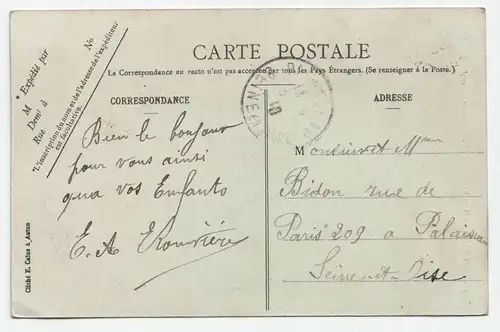 CARTE POSTALE
La Correspondance au recto n'est pas acceptée par tous les Pays Étrangers. (Se renseigner à la Poste.)
* Expédié par
M No
Demt à
Rue
*L'inscription du nom et de l'adresse de l'expéditeur
est facultative.
CORRESPONDANCE
Bien le bonjour
pour vous ainsi
qua vos Enfants
E. A Rouvière
ADRESSE
Monsieur et Mme
Bidon rue de
Paris 209 a Palaiseau
Seine-et-Oise
Cliché E. Caïne à, Autun